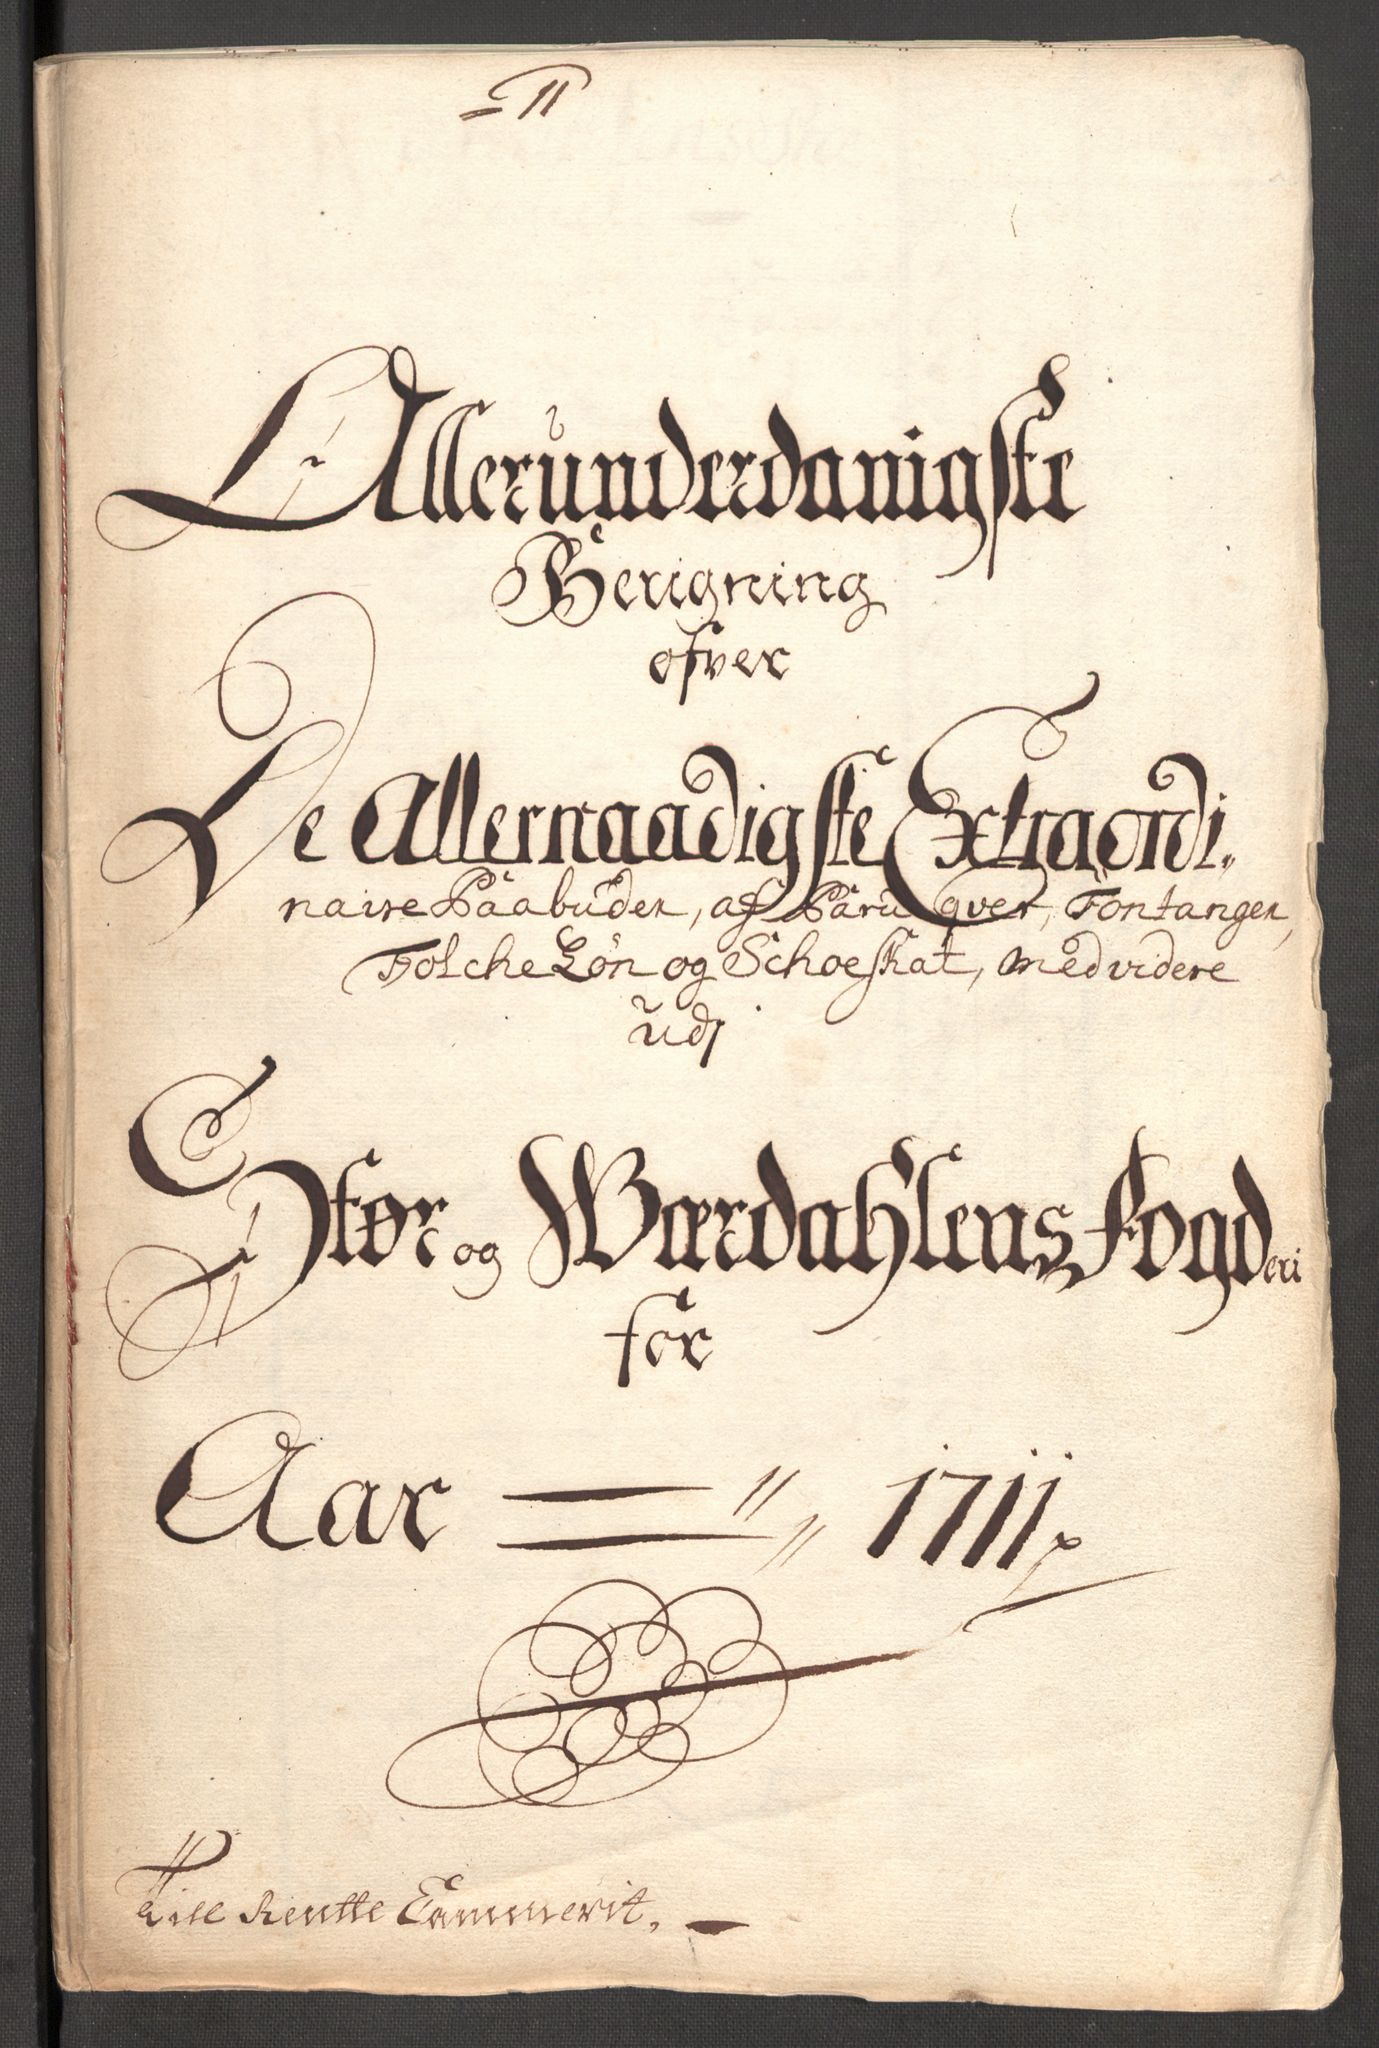 Allerunderdanigste
Berigning
ofver
De Allernaadigste Extraordi„
naire Paabuder, af Paruqver, Fontanger,
Folche Løn og Schoeskat, med videre
udj
Stør og Wærdahlens Fogderi
for
Aar 1711
Till Rentte Cammerit.